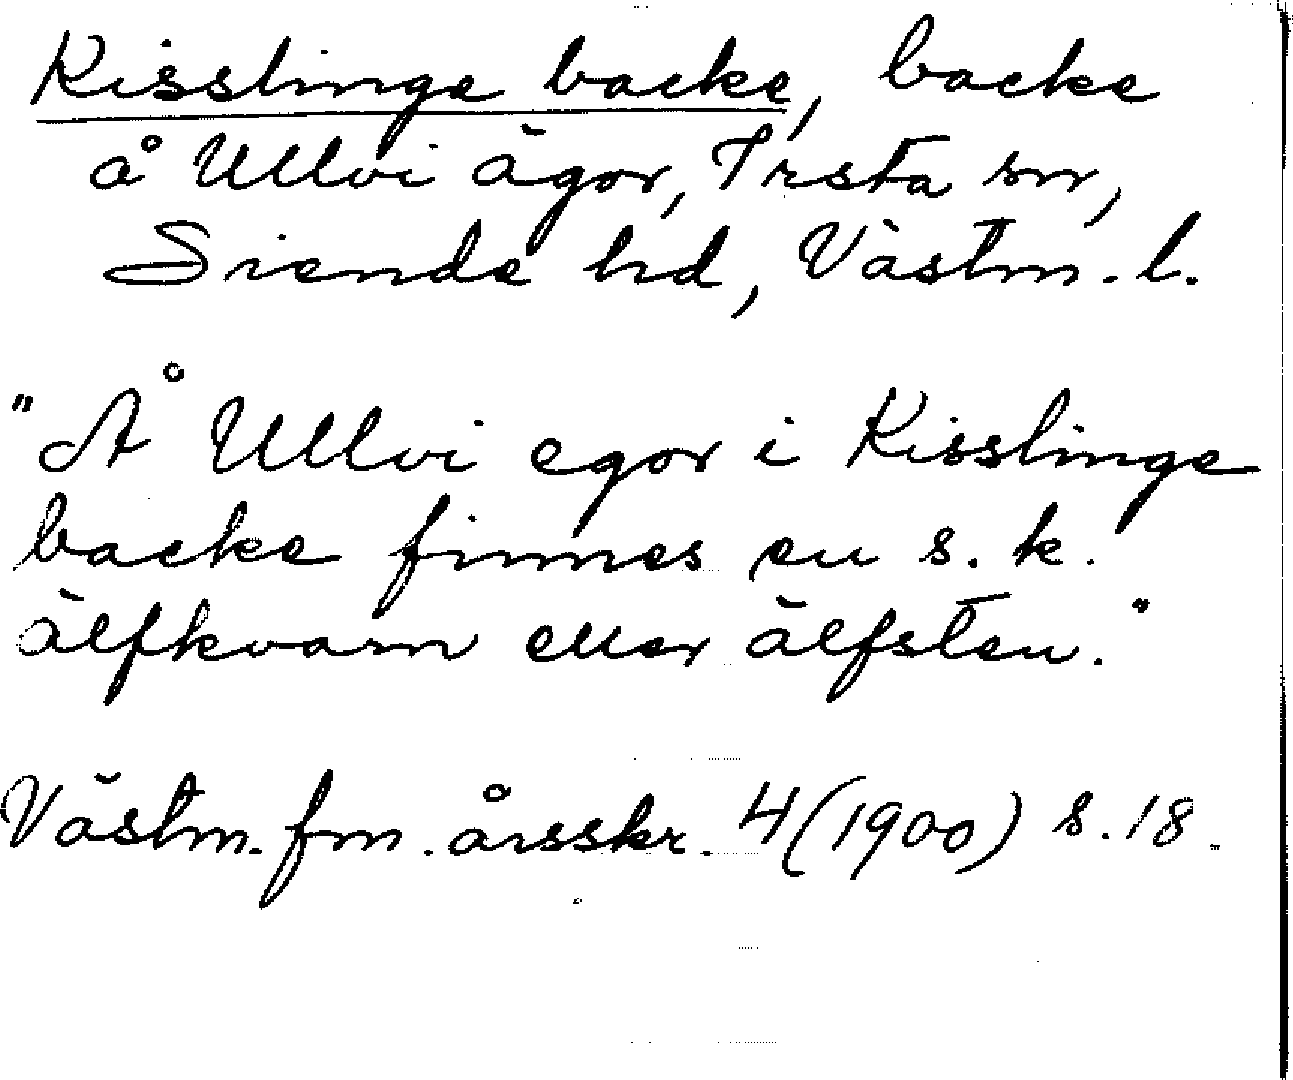 Kisslinge backe, backe
å Ullvi ägor, Irsta sn,
Siende hd, Västm. l.
"Å Ullvi egor i Kisslinge
backe finnes en s. k.
älfkvarn eller älfsten."
Västm. fm. årsskr. 4 (1900) s. 18.